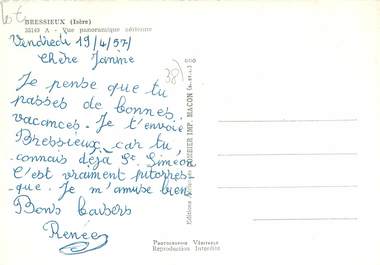 Lot
BRESSIEUX (Isère)
35149 A - Vue panoramique aérienne
Vendredi 19/4/57
Chère Janine
38
Je pense que tu
passes de bonnes
vacances. Je t'envoie
Bressieux, car tu
connais déjà St Siméon
C'est vraiment pittores-
que. Je m'amuse bien
Bons baisers
Renée
COMBIER IMP. MACON
PHOTOGRAPHIE VÉRITABLE
Reproduction Interdite